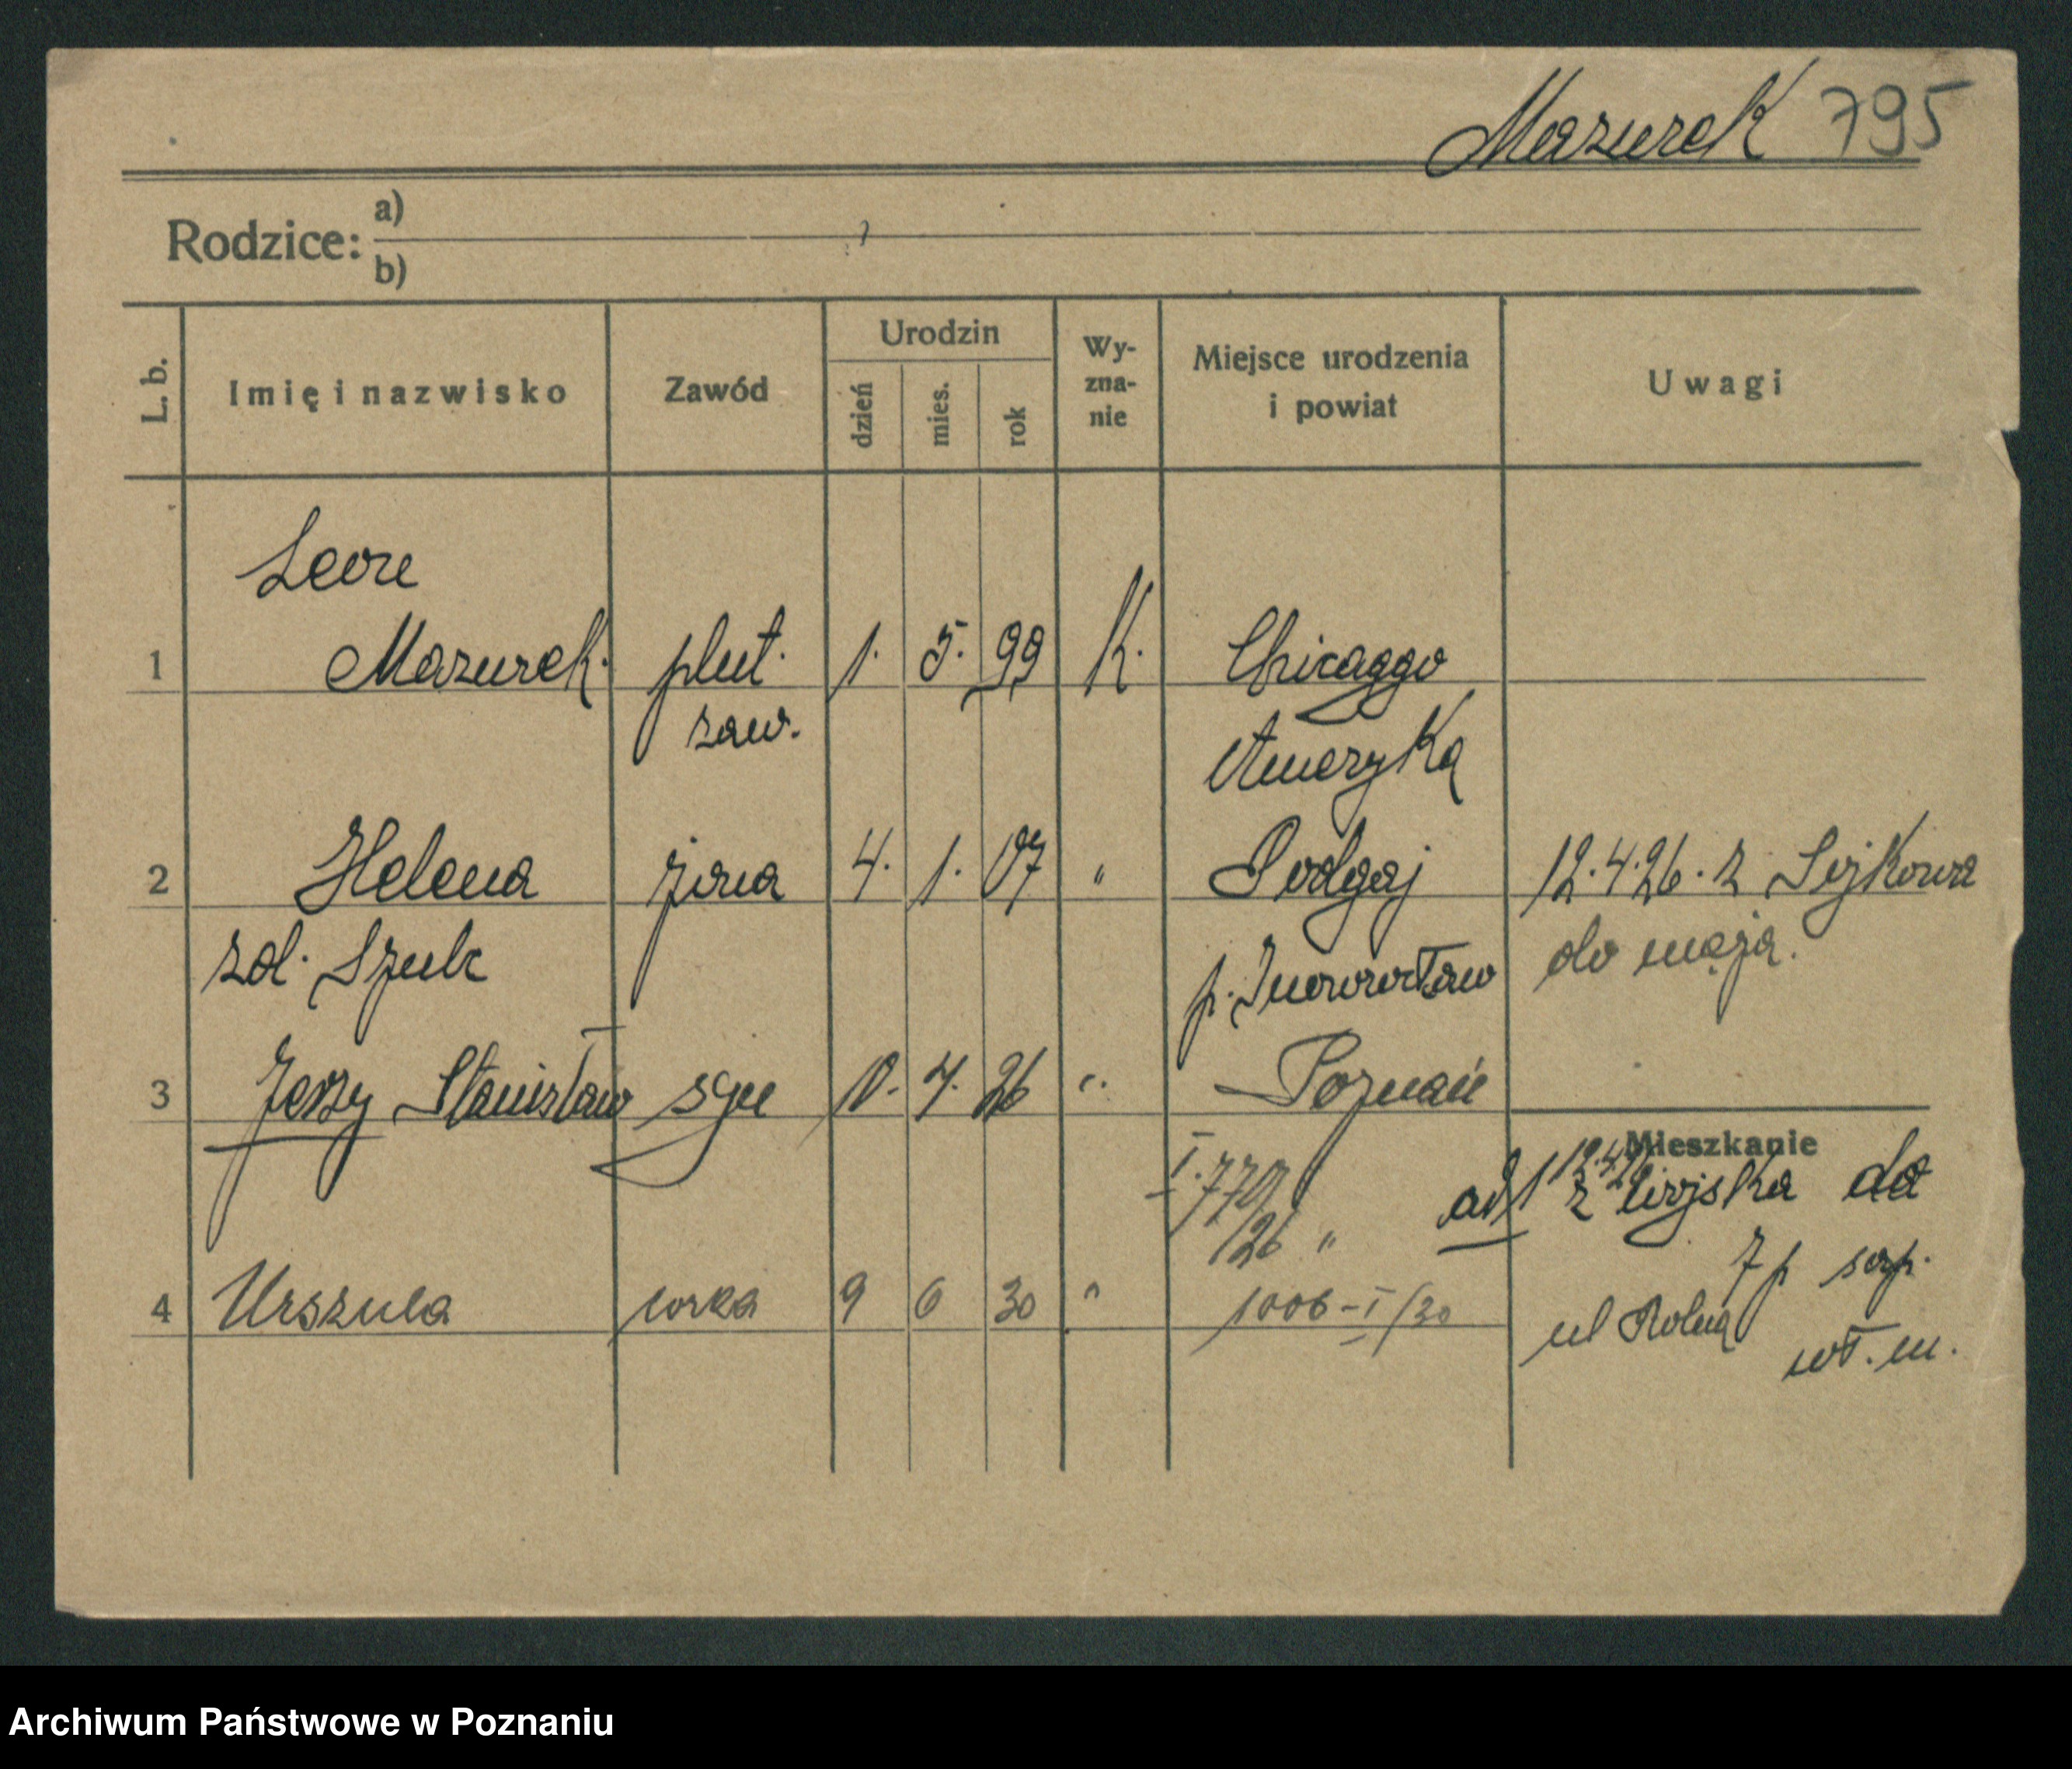 Mazurek 795
Rodzice: a)
b)
L. b.
Imię i nazwisko
Zawód
Urodzin
dzień mies. rok
Wy-
zna-
nie
Miejsce urodzenia
i powiat
Uwagi
Leon
1 Mazurek. plut. 1. 5. 99 K. Chicaggo
zaw. Ameryka
2 Helena żona 4. 1. 07 " Podgaj 12.4.26. z
zd. Szulc p. Inowrocław do męża.
3 Jerzy Stanisław syn 10. 4. 26 " Poznań
Mieszkanie
I.770 ad 1 z wojska do
/26 " 7 p sap.
4 Urszula corka 9 6 30 " 1006-I/30 ul Rolna
wł. m.
Archiwum Państwowe w Poznaniu